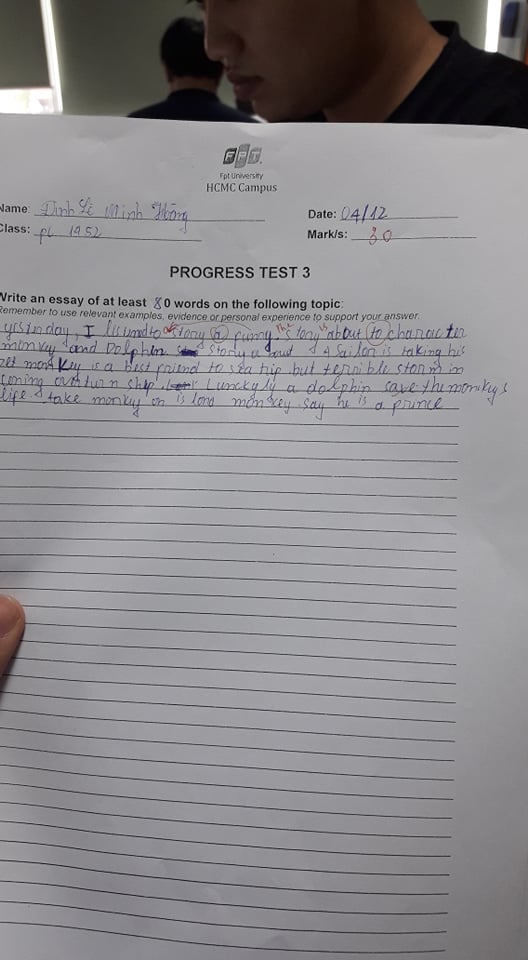 FPT
Fpt University
HCMC Campus
Name: Đinh Lê Minh Hồng
Date: 04/12
Class: 1952
Mark/s: 30
PROGRESS TEST 3
Write an essay of at least 80 words on the following topic:
Remember to use relevant examples, evidence or personal experience to support your answer.
yesinday, I lisined to a story a funny The story is about to character
monkey and Dolphin story a bout A Sailor is taking his
pet monkey is a best friend to sea trip but terrible storm in
coming overturn ship. Lunckyly a dolphin save the monkys
life. take monkey on is land monkey say he is a prince